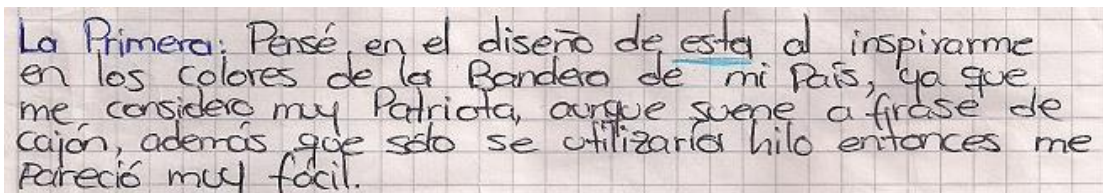 La Primera: Pensé en el diseño de esta al inspirarme
en los colores de la Bandera de mi País, ya que
me considero muy Patriota, aunque suene a frase de
cajón, además que sólo se utilizaría hilo entonces me
Pareció muy fácil.